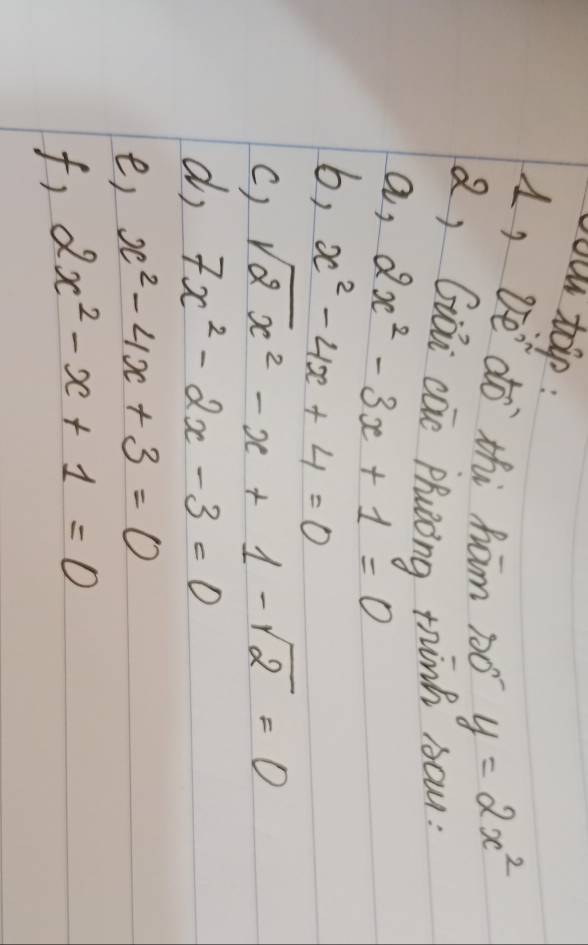 tập:
1, Vẽ đồ thị hàm số y = 2x²
2, Giải các phương trình sau:
a, 2x² - 3x + 1 = 0
b, x² - 4x + 4 = 0
c, √2 x² - x + 1 - √2 = 0
d, 7x² - 2x - 3 = 0
e, x² - 4x + 3 = 0
f, 2x² - x + 1 = 0